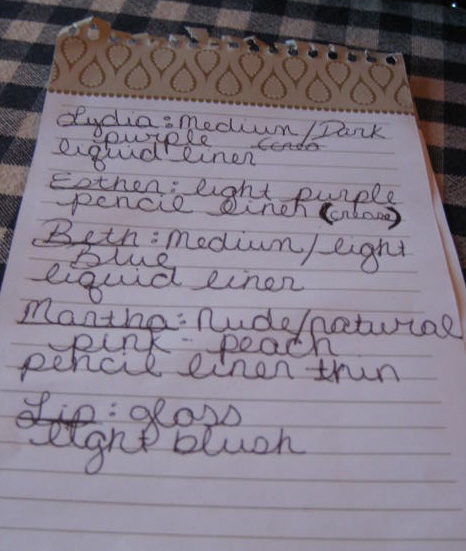 Lydia: Medium/Dark
purple
liquid liner
Esther: light purple
pencil liner (crease)
Beth: Medium/light
Blue
liquid liner
Martha: Nude/natural
pink - peach
pencil liner thin
Lip: gloss
light blush